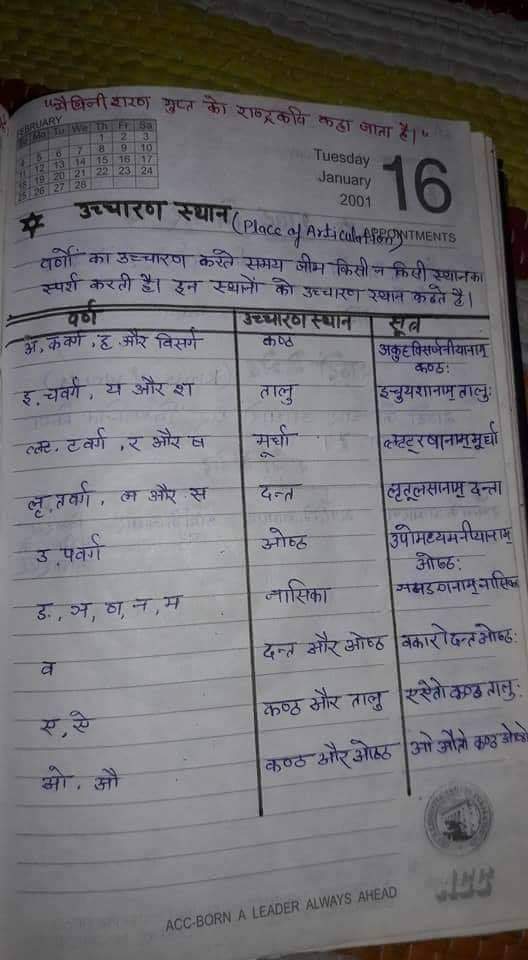 "मैथिलीशरण गुप्त को राष्ट्रकवि कहा जाता है।"
FEBRUARY
Mo Tu We Th Fr Sa
1 2 3
4 5 6 7 8 9 10
11 12 13 14 15 16 17
18 19 20 21 22 23 24
25 26 27 28
Tuesday
January
2001
16
APPOINTMENTS
उच्चारण स्थान (Place of Articulation)
वर्णों का उच्चारण करते समय जीभ किसी न किसी स्थान का
स्पर्श करती है। इन स्थानों को उच्चारण स्थान कहते है।
वर्ण उच्चारण स्थान सूत्र
अ, कवर्ग, ह और विसर्ग कण्ठ अकुहविसर्जनीयानाम् कण्ठः
इ, चवर्ग, य और श तालु इचुयशानाम् तालुः
टवर्ग, र और ष मूर्धा मूर्धा
लृ, तवर्ग, ल और स दन्त लृतुलसानाम् दन्ता
उ, पवर्ग ओष्ठ उपोमध्यमनीयानाम् ओष्ठः
ङ, ञ, ण, न, म नासिका
व दन्त और ओष्ठ वकारो दन्त ओष्ठः
ए, ऐ कण्ठ और तालु कण्ठ तालुः
ओ, औ कण्ठ और ओष्ठ ओ औतो कण्ठ
ACC
ACC-BORN A LEADER ALWAYS AHEAD